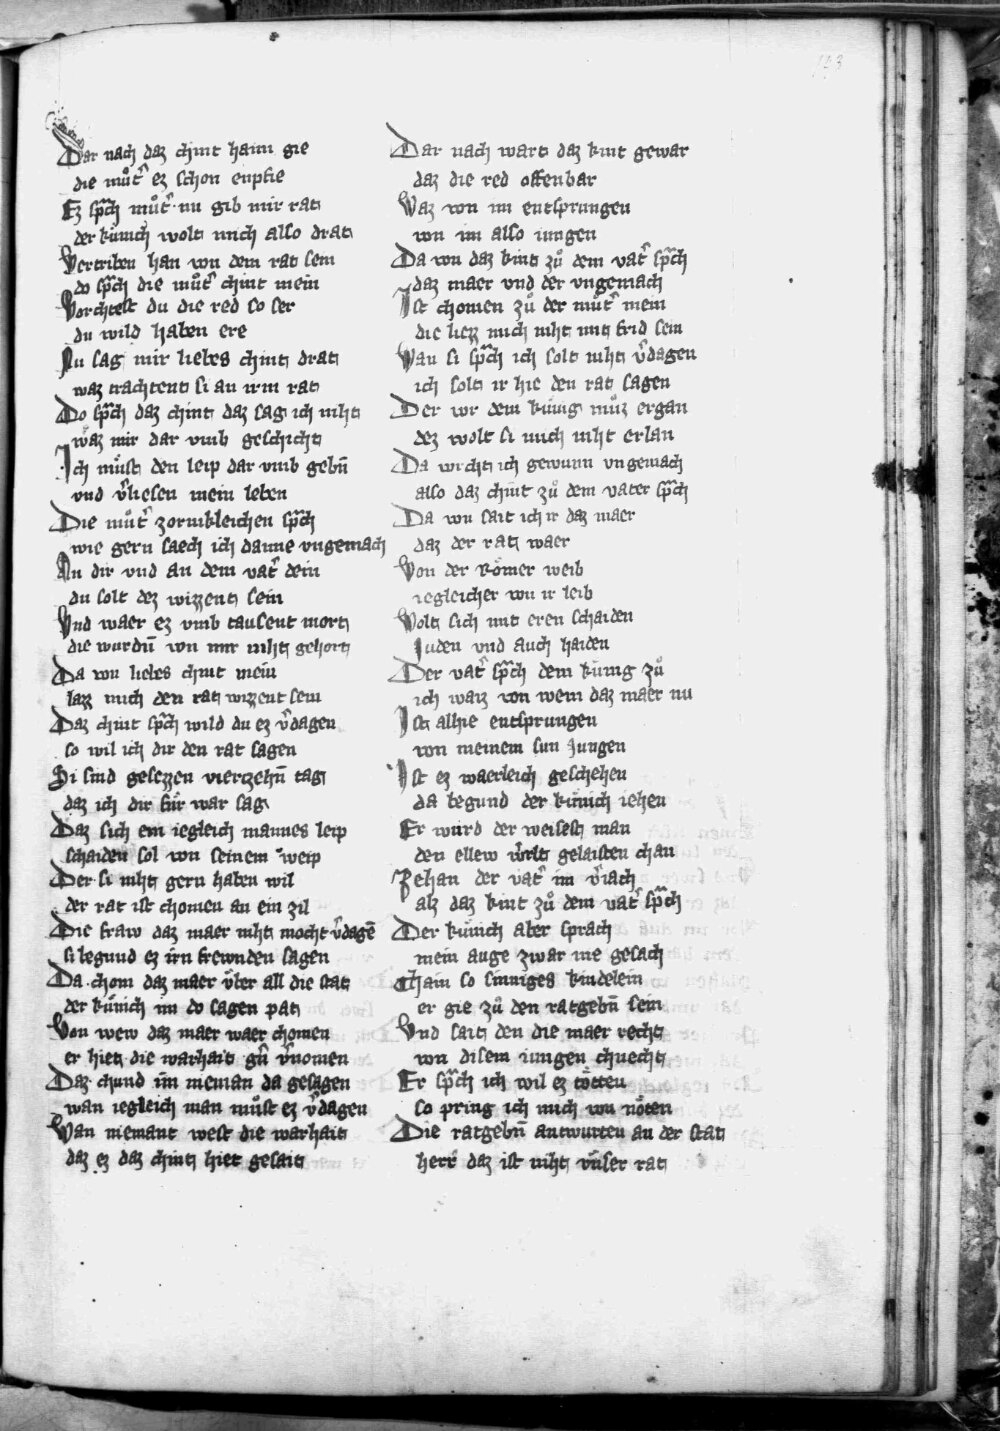 143
Dar nach daz chint haim gie
die muͦt͛ ez schon enpfie
Ez sp͛ch muͦt͛ nu gib mir rat
der kuͤnich wolt mich also drat
Vertriben han von dem rat sein
do sp͛ch die muͦt͛ chint mein
Vorchtest du die red so ser
du wild haben ere
Nu sag mir liebes chint drat
waz trachtent si an irm rat
Do sp͛ch daz chint daz sag ich niht
waz mir dar vmb geschicht
Ich muͤst den leip dar vmb gebn̄
vnd v͛liesen mein leben
Die muͦt͛ zornikleichen sp͛ch
wie gern saech ich danne vngemach
An dir vnd an dem vat͛ dein
du solt dez wizzent sein
Vnd waer ez vmb tausent mort
die wurdn̄ von mir niht gehort
Da von liebes chint mein
lazz mich den rat wizzent sein
Daz chint sp͛ch wild du ez v͛dagen
so wil ich dir den rat sagen
Si sind gesezzen viertzehn̄ tag
daz ich dir fuͤr war sag
Daz sich ein iegleich mannes leip
schaiden sol von seinem weip
Der si niht gern haben wil
der rat ist chomen an ein zil
Die fraw daz maer niht mocht v͛dagē
si begund ez irn frewnden sagen
Da chom daz maer vͤber all die stat
der kuͤnich im do sagen pat
Von wew daz maer waer chomen
er hiet die warhait gn̄ v͛nomen
Daz chund im nieman da gesagen
wan iegleich man muͤst ez v͛dagen
Wan niemant west die warhait
daz ez daz chint hiet gesait
Dar nach wart daz kint gewar
daz die red offenbar
Waz von im entsprungen
von im also iungen
Da von daz kint zuͦ dem vat͛ sp͛ch
daz maer vnd der vngemach
Ist chomen zuͦ der muͦt͛ mein
die liezz mich niht mit frid sein
Wan si sp͛ch ich solt niht v͛dagen
ich solt ir hie den rat sagen
Der vor dem kuͤnig muͤz ergan
dez wolt si mich niht erlan
Da vorcht ich gewunn vngemach
also daz chint zuͦ dem vater sp͛ch
Da von sait ich ir daz maer
daz der rat waer
Von der Roͤmer weib
iegleicher von ir leib
Wolt sich mit eren schaiden
Juden vnd auch haiden
Der vat͛ sp͛ch dem kuͤnig zuͦ
ich waiz von wem daz maer nu
Ist alhie entsprungen
von meinem sun Jungen
Ist ez waerleich geschehen
da begund der kuͤnich iehen
Er wurd der weisest man
den ellew w͛lt gelaisten chan
Zehan der vat͛ im v͛iach
alz daz kint zuͦ dem vat͛ sp͛ch
Der kuͤnich aber sprach
mein auge zwar nie gesach
Chain so sinniges kindelein
er gie zuͦ den ratgebn̄ sein
Vnd sait den die maer recht
von disem iungen chnecht
Er sp͛ch ich wil ez toͤtten
so pring ich mich von noͤten
Die ratgebn̄ antwurten an der stat
herr daz ist niht vnser rat